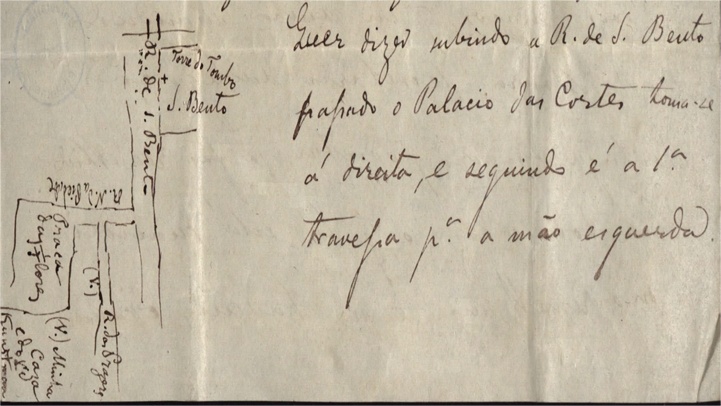 Quer dizer subindo a R. de S. Bento
passado o Palacio das Cortes toma-se
á direita, e seguindo é a 1.ª
travessa p.ª a mão esquerda.
Torre do Tombo
S. Bento
R. de S. Bento
R. N. da Piedade
Praça
das Flores
(V.)
(V.) Minha
Caza
e do Sr. D.
Kunstmann